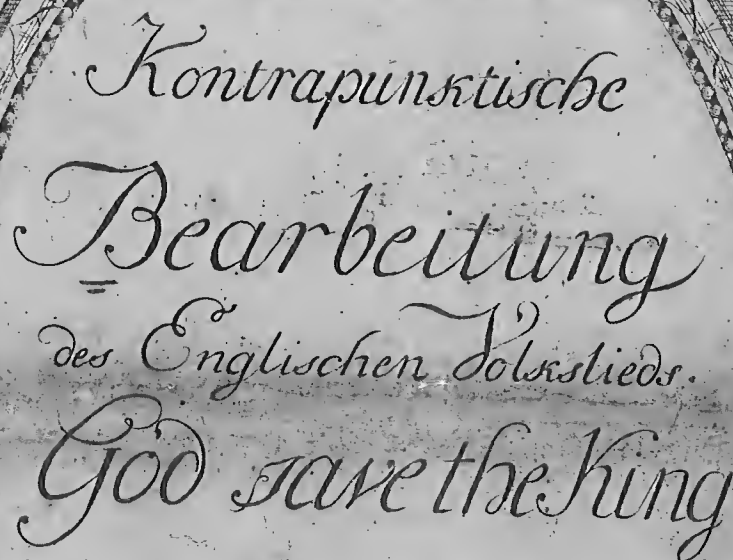 Kontrapunktische
Bearbeitung
des Englischen Volkslieds.
God save the King